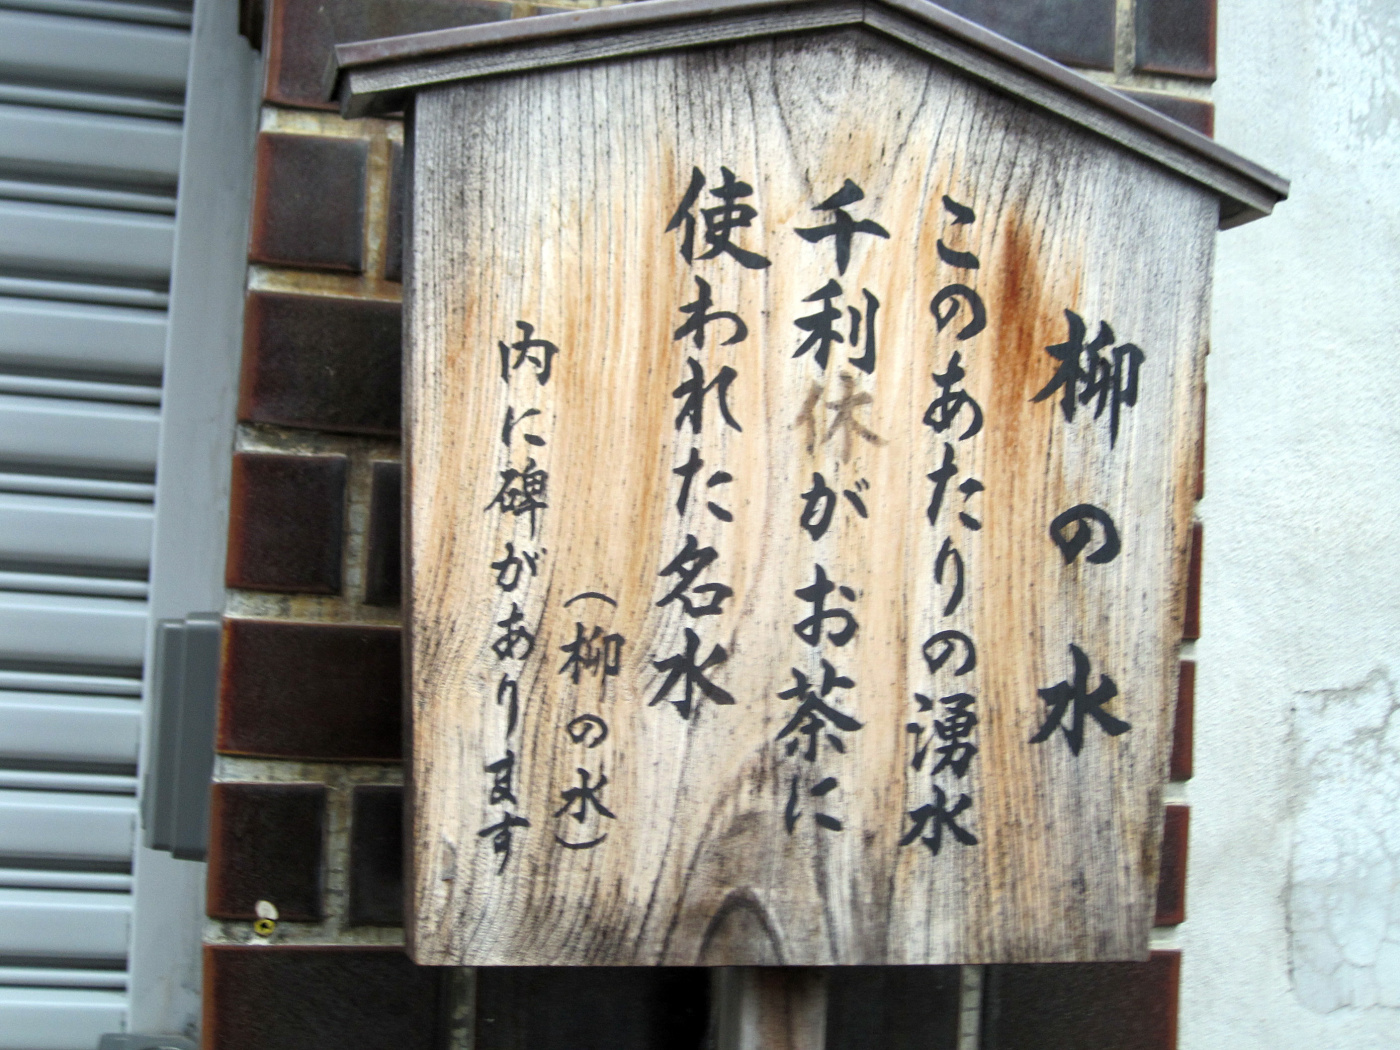 柳の水
このあたりの湧水
千利休がお茶に
使われた名水
（柳の水）
内に碑があります